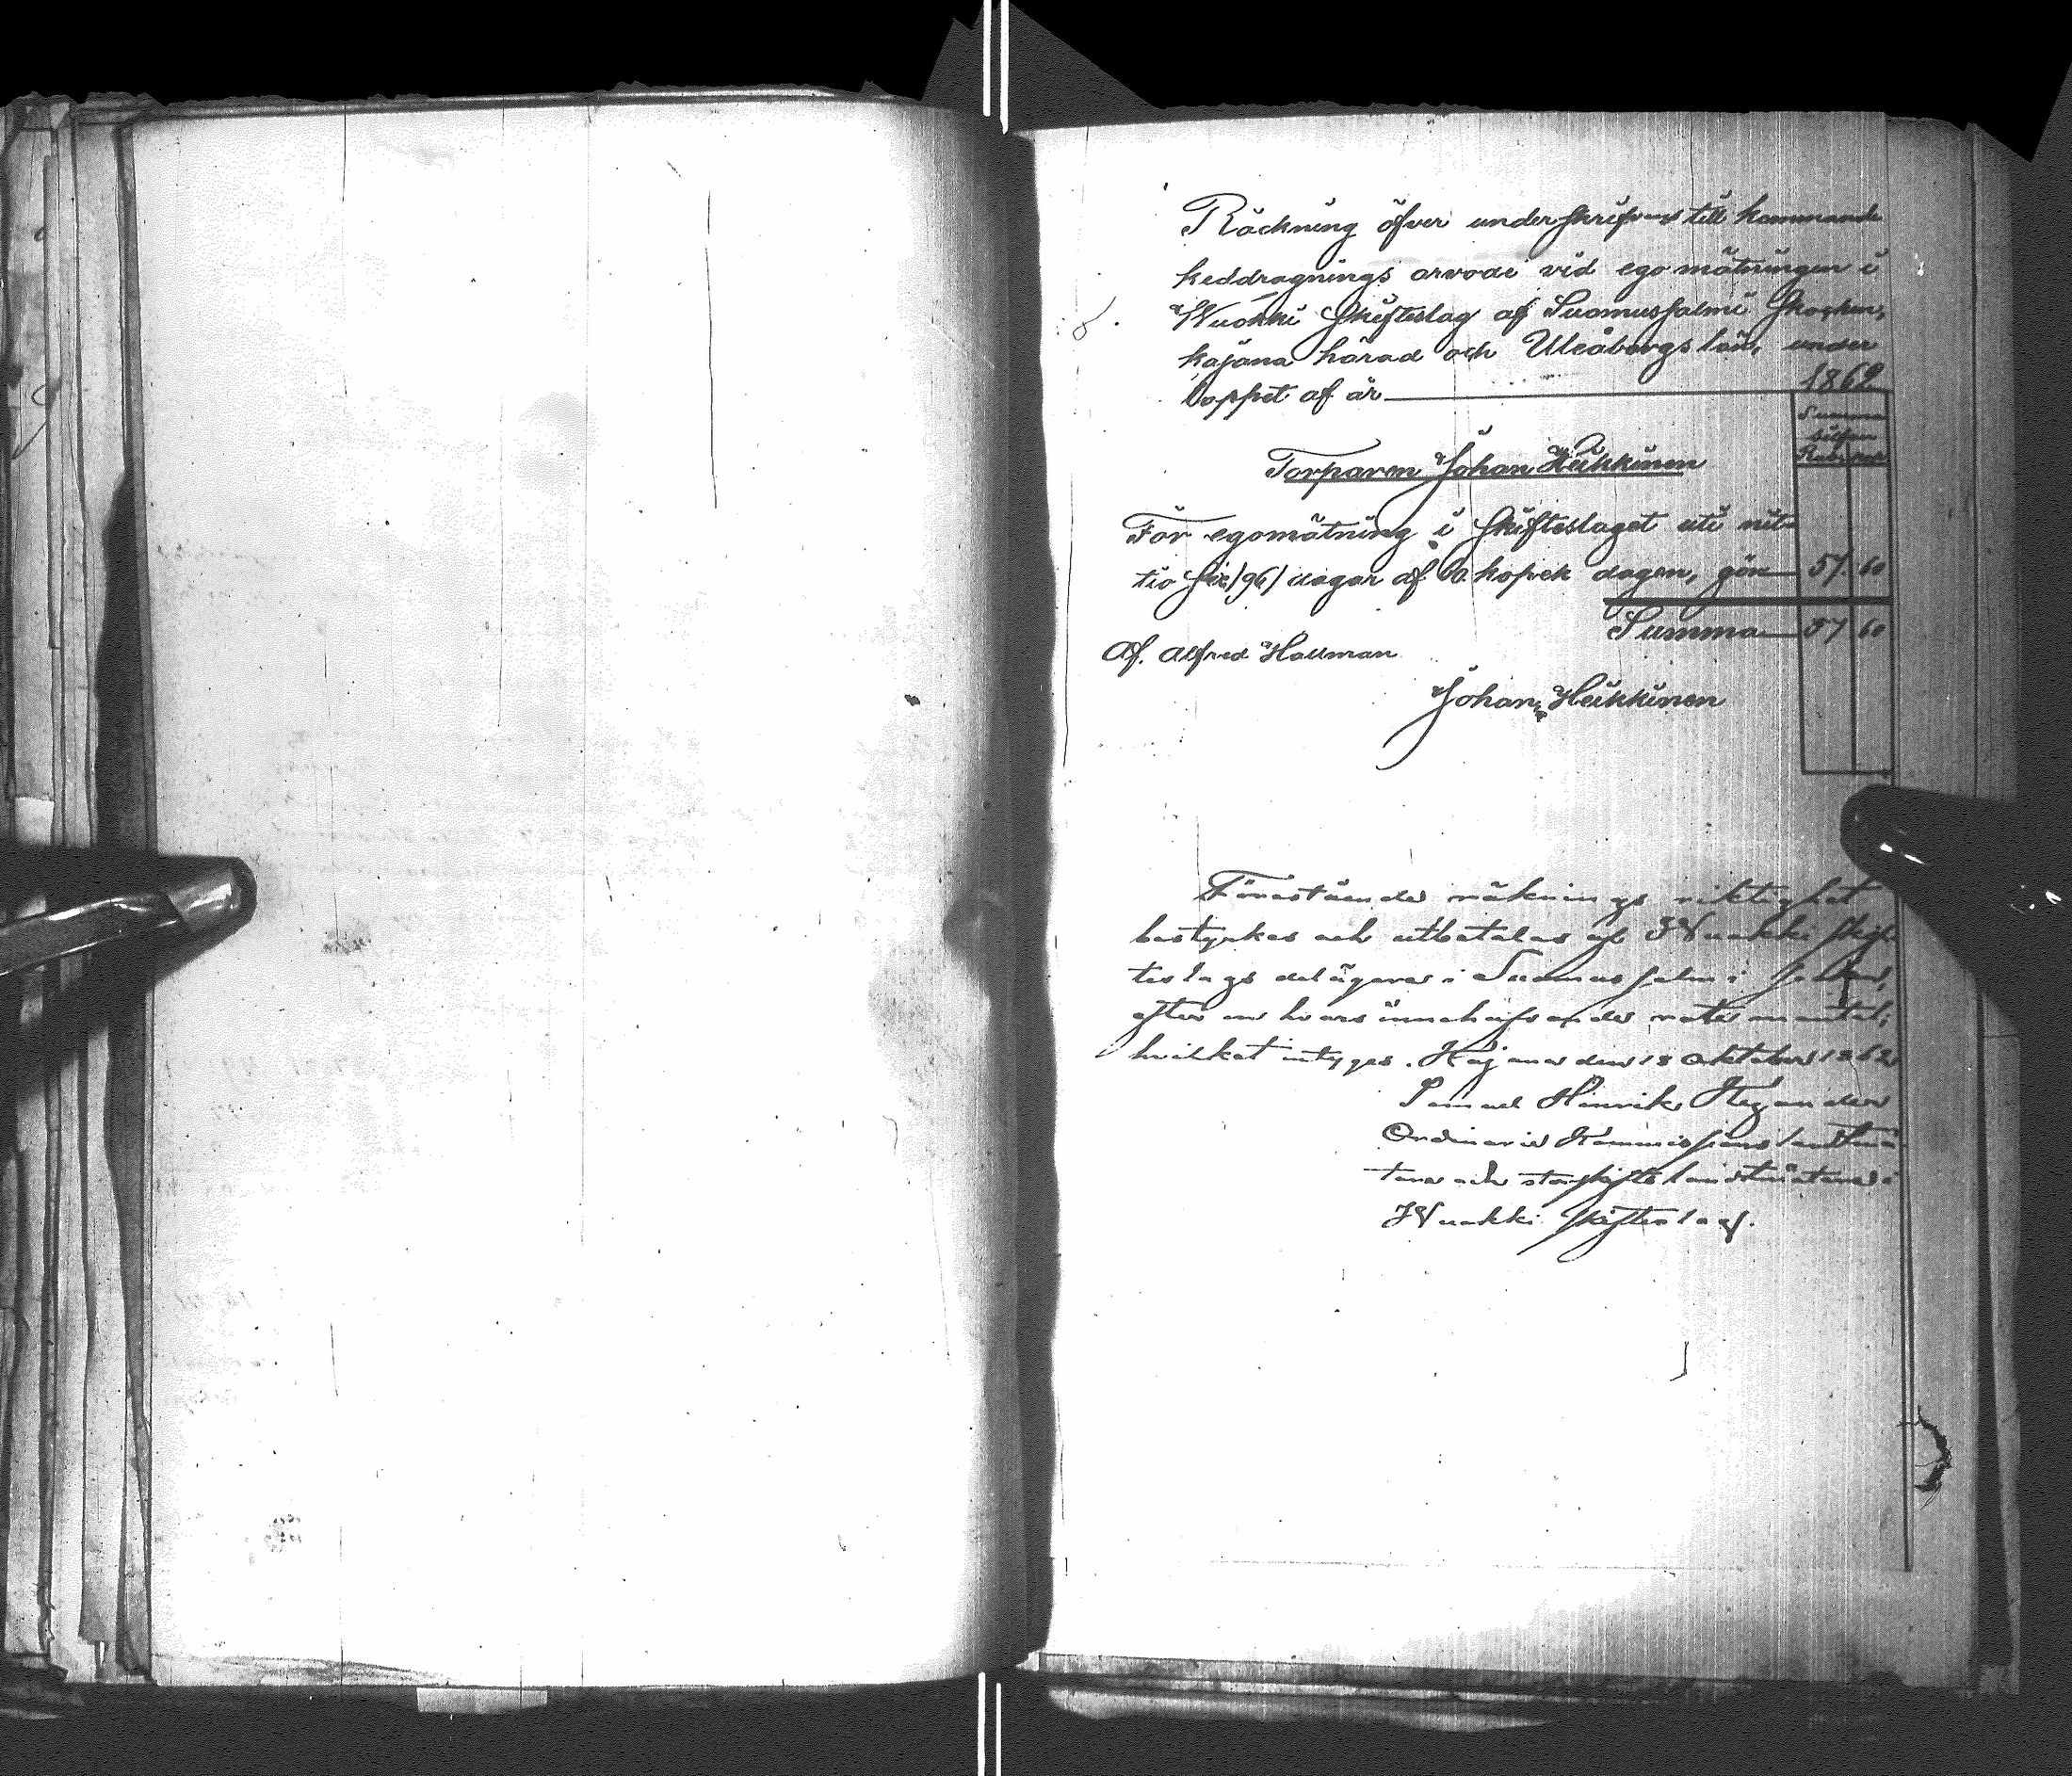 Räckning öfver underskrifvens till kommande
keddragnings arvode vid egomätningen i
Wuokki Skifteslag af Suomussalmi Socken,
kajana härad och Uleåborgs län, under
loppet af år 1862
Summa
silfver
Rub. kop
Torparen Johan Heikkinen
För egomätning i Skifteslaget uti nit-
tio sex/96/ dagar af 60 kopek dagen, gör 57. 60
Summa 57 60
Af. Alfred Hallman
Johan Heikkinen
Förestående räknings riktighet
bestyrkes och utbetalas af Wuokki skif-
teslags delägare i Suomussalmi Socken,
efter en hvars innehafvande mantal;
hvilket intygas. Kajana den 18 Oktober 1862
Samuel Hinrik
Ordinarie Kommissions landtmä-
tare och storskiftes landtmätare i
Wuokki skifteslag.